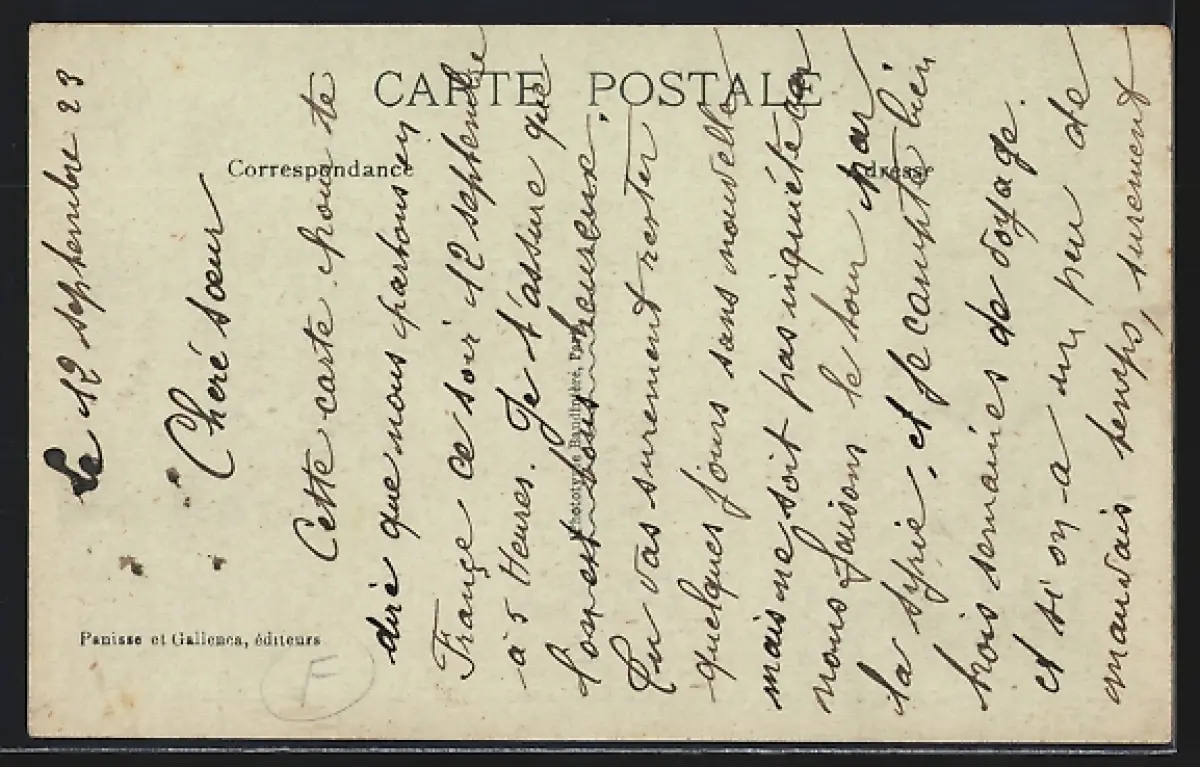 CARTE POSTALE
Correspondance
Adresse
Panisse et Gallenca, éditeurs
Phototypie Bandinière, Paris
F
Le 12 septembre 23
Cheré sœur
Cette carte pour te
diré que nous partons en
France ce soir 12 septembre
à 5 Heures. Je t'assure que
l'on est tous heureuse,
Tu vas surement rester
quelques jours sans nouvelle
mais ne soit pas inquiéte car
nous faisons le tour par
la syrie, et je compte bien
trois semaines de voyage.
et si on a un peu de
mauvais temps, surement